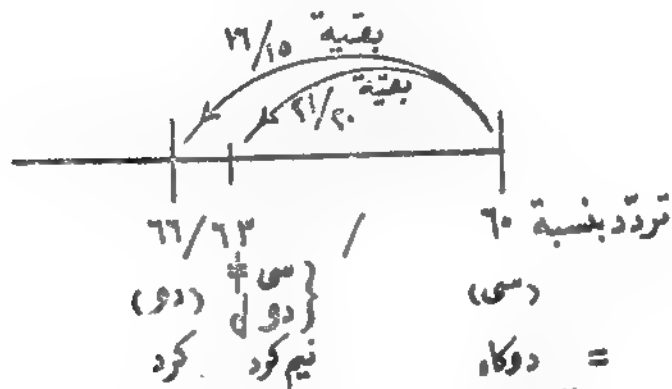 بقية ١٦/١٥
بقية ٢١/٢٠
تردّد بنسبة ٦٠ / ٦٦/٦٣
(سى) { سى ‡ (دو)
{ دو
= دوكاه نيم كرد كرد